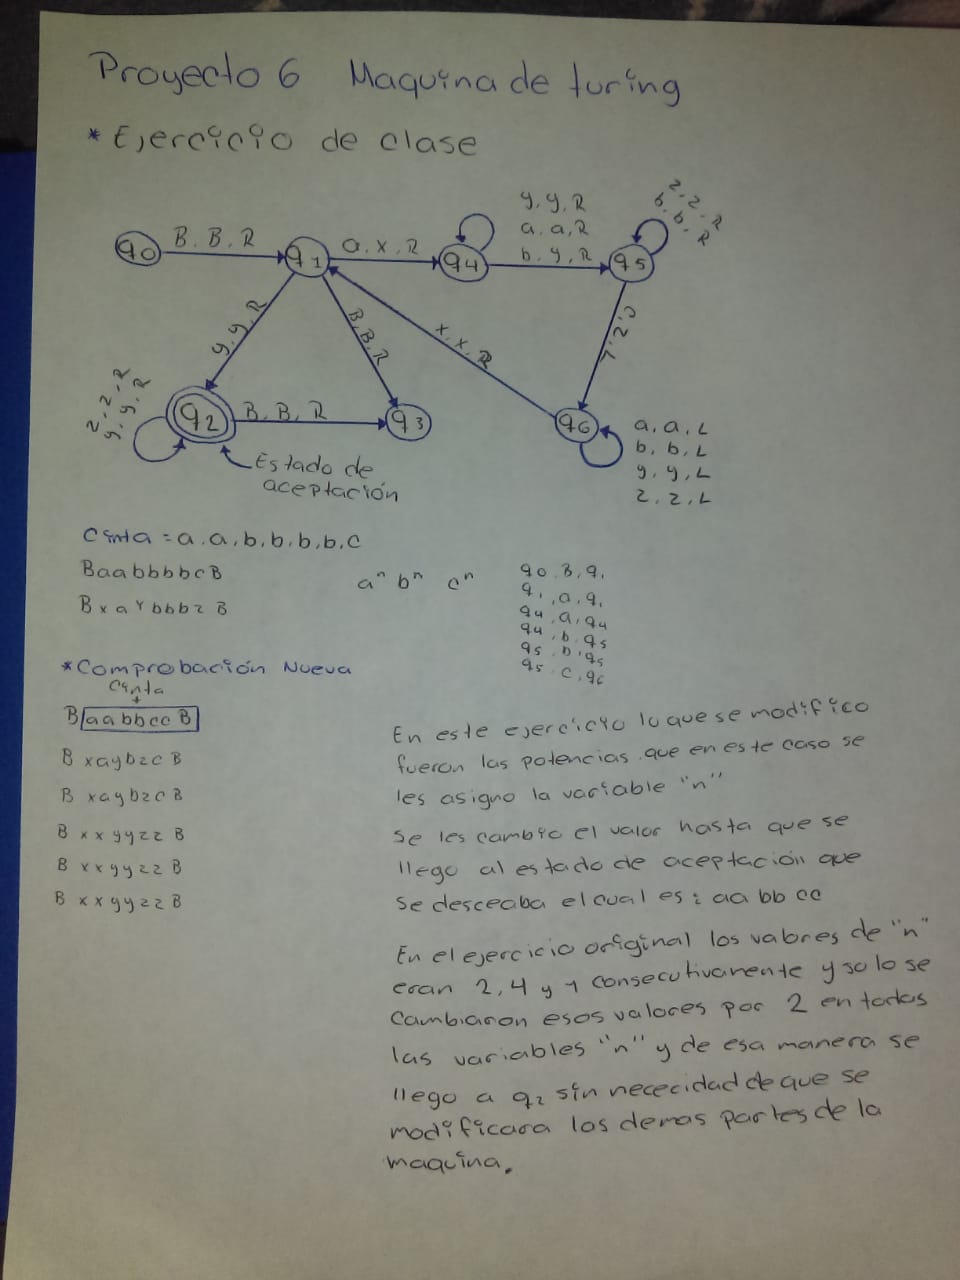 Proyecto 6 Maquina de turing
* Ejercicio de clase
q0
B, B, R
q1
a, x, R
q4
y, y, R
a, a, R
b, y, R
q5
z, z, R
b, b, R
y, y, R
B, B, R
x, x, R
c, z, L
z, z, R
y, y, R
q2
B, B, R
q3
q6
a, a, L
b, b, L
y, y, L
z, z, L
Estado de
aceptación
Cinta = a, a, b, b, b, b, c
BaabbbbcB
BxaYbbbzB
aⁿ bⁿ cⁿ
q0, B, q1
q1, a, q,
q4, a, q4
q4, b, q5
q5, b, q5
q5, c, q6
* Comprobación Nueva
Cinta
B aabbccB
B xaybzc B
B xaybzc B
B xxyyzz B
B xxyyzz B
B xxyyzz B
En este ejercicio lo que se modifico
fueron las potencias que en este caso se
les asigno la variable "n"
Se les cambio el valor hasta que se
llego al estado de aceptación que
se desceaba el cual es: aa bb cc
En el ejercicio original los valores de "n"
eran 2, 4 y 1 consecutivamente y solo se
cambiaron esos valores por 2 en todas
las variables "n" y de esa manera se
llego a q2 sin nececidad de que se
modificara los demas partes de la
maquina.